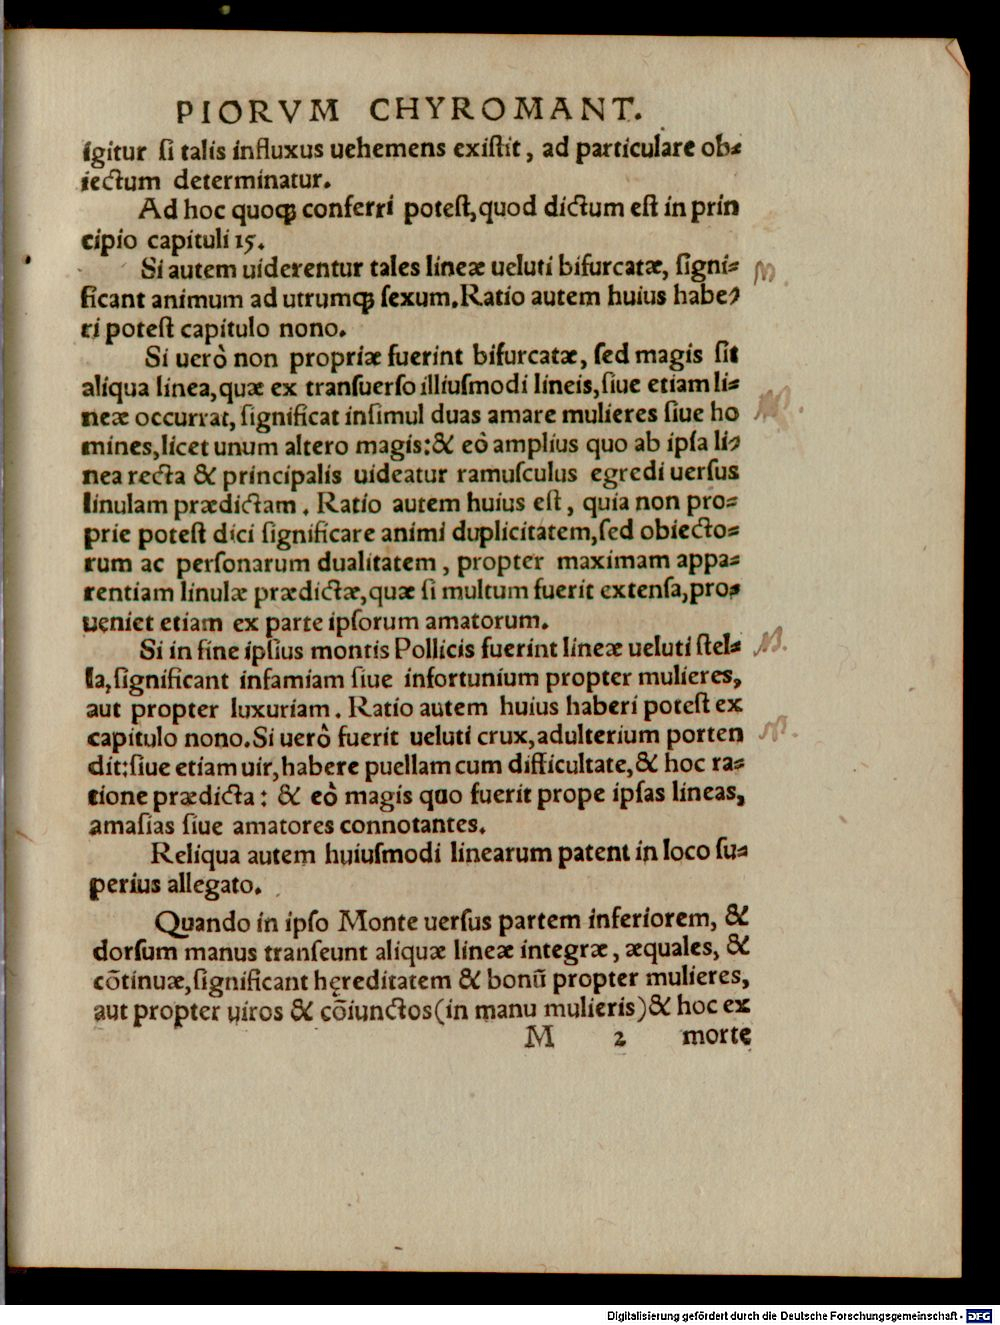 PIORVM CHYROMANT.
igitur ſi talis influxus uehemens exiſtit, ad particulare ob⸗
iectum determinatur.
Ad hoc quoqꝫ conferri poteſt, quod dictum eſt in prin
cipio capituli 15.
Si autem uiderentur tales lineæ ueluti bifurcatæ, ſigni⸗
ficant animum ad utrumqꝫ ſexum. Ratio autem huius habe⸗
ri poteſt capitulo nono.
Si uerò non propriæ fuerint bifurcatæ, ſed magis ſit
aliqua linea, quæ ex tranſuerſo illiuſmodi lineis, ſiue etiam li⸗
neæ occurrat, ſignificat inſimul duas amare mulieres ſiue ho
mines, licet unum altero magis: & eò amplius quo ab ipſa li⸗
nea recta & principalis uideatur ramuſculus egredi uerſus
linulam prædictam. Ratio autem huius eſt, quia non pro⸗
prie poteſt dici ſignificare animi duplicitatem, ſed obiecto⸗
rum ac perſonarum dualitatem, propter maximam appa⸗
rentiam linulæ prædictæ, quæ ſi multum fuerit extenſa, pro⸗
ueniet etiam ex parte ipſorum amatorum.
Si in fine ipſius montis Pollicis fuerint lineæ ueluti ſtel⸗
la, ſignificant infamiam ſiue infortunium propter mulieres,
aut propter luxuriam. Ratio autem huius haberi poteſt ex
capitulo nono. Si uerò fuerit ueluti crux, adulterium porten
dit: ſiue etiam uir, habere puellam cum difficultate, & hoc ra⸗
tione prædicta: & eò magis quo fuerit prope ipſas lineas,
amaſias ſiue amatores connotantes.
Reliqua autem huiuſmodi linearum patent in loco ſu⸗
perius allegato.
Quando in ipſo Monte uerſus partem inferiorem, &
dorſum manus tranſeunt aliquæ lineæ integræ, æquales, &
cõtinuæ, ſignificant hęreditatem & bonũ propter mulieres,
aut propter uiros & cõiunctos (in manu mulieris) & hoc ex
M 2 morte
Digitalisierung gefördert durch die Deutsche Forschungsgemeinschaft - DFG